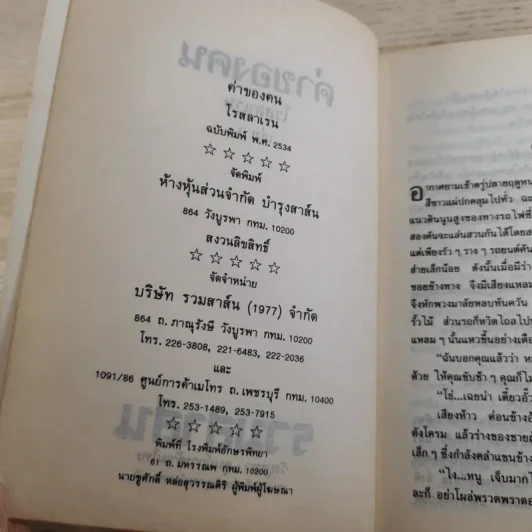 ค่าของคน
โรสลาเรน
ฉบับพิมพ์ พ.ศ. 2534
☆ ☆ ☆ ☆ ☆
จัดพิมพ์
ห้างหุ้นส่วนจำกัด บำรุงสาส์น
864 วังบูรพา กทม. 10200
สงวนลิขสิทธิ์
☆ ☆ ☆ ☆ ☆
จัดจำหน่าย
บริษัท รวมสาส์น (1977) จำกัด
864 ถ. ภาณุรังษี วังบูรพา กทม. 10200
โทร. 226-3808, 221-6483, 222-2036
และ
1091/86 ศูนย์การค้าเมโทร ถ. เพชรบุรี กทม. 10400
โทร. 253-1489, 253-7915
☆ ☆ ☆ ☆ ☆
พิมพ์ที่ โรงพิมพ์อักษรพิทยา
61 ถ. มหรรณพ กทม. 10200
นายชูศักดิ์ หล่อสุวรรณศิริ ผู้พิมพ์ผู้โฆษณา
อากาศยามเช้าตรู่ปลายฤดูหน
สีขาวแผ่ปกคลุมไปทั่ว
แนวดินนูนสูงของทางรถไฟ
สองคันจะแล่นสวนกันได้โดย
แต่เพียงรัว ๆ ราง ๆ รถยนต์คัน
ส่ายเล็กน้อย ดังนั้นเมื่อมี
ซอยข้างทาง จึงมีเสียงแหลม
จึงหักพวงมาลัยหลบทันควัน
รั้วไม้ ส่วนรถก็หวิดไถลไป
แหลม ๆ นั้นแหวขึ้นอย่างเดือ
“ฉันบอกคุณแล้วว่า
ด้วย ให้คุณขับช้า ๆ คุณก็
“โธ่...เฉยน่า เดี๋ยวอั๊ว
เสียงห้าว ค่อนข้าง
ดังโครม แล้วร่างของชาย
เล็ก ๆ ซึ่งกำลังคลำแขนข้าง
“ไง...หนู เจ็บมาก
ละก็ อย่าโผล่พรวดพราด